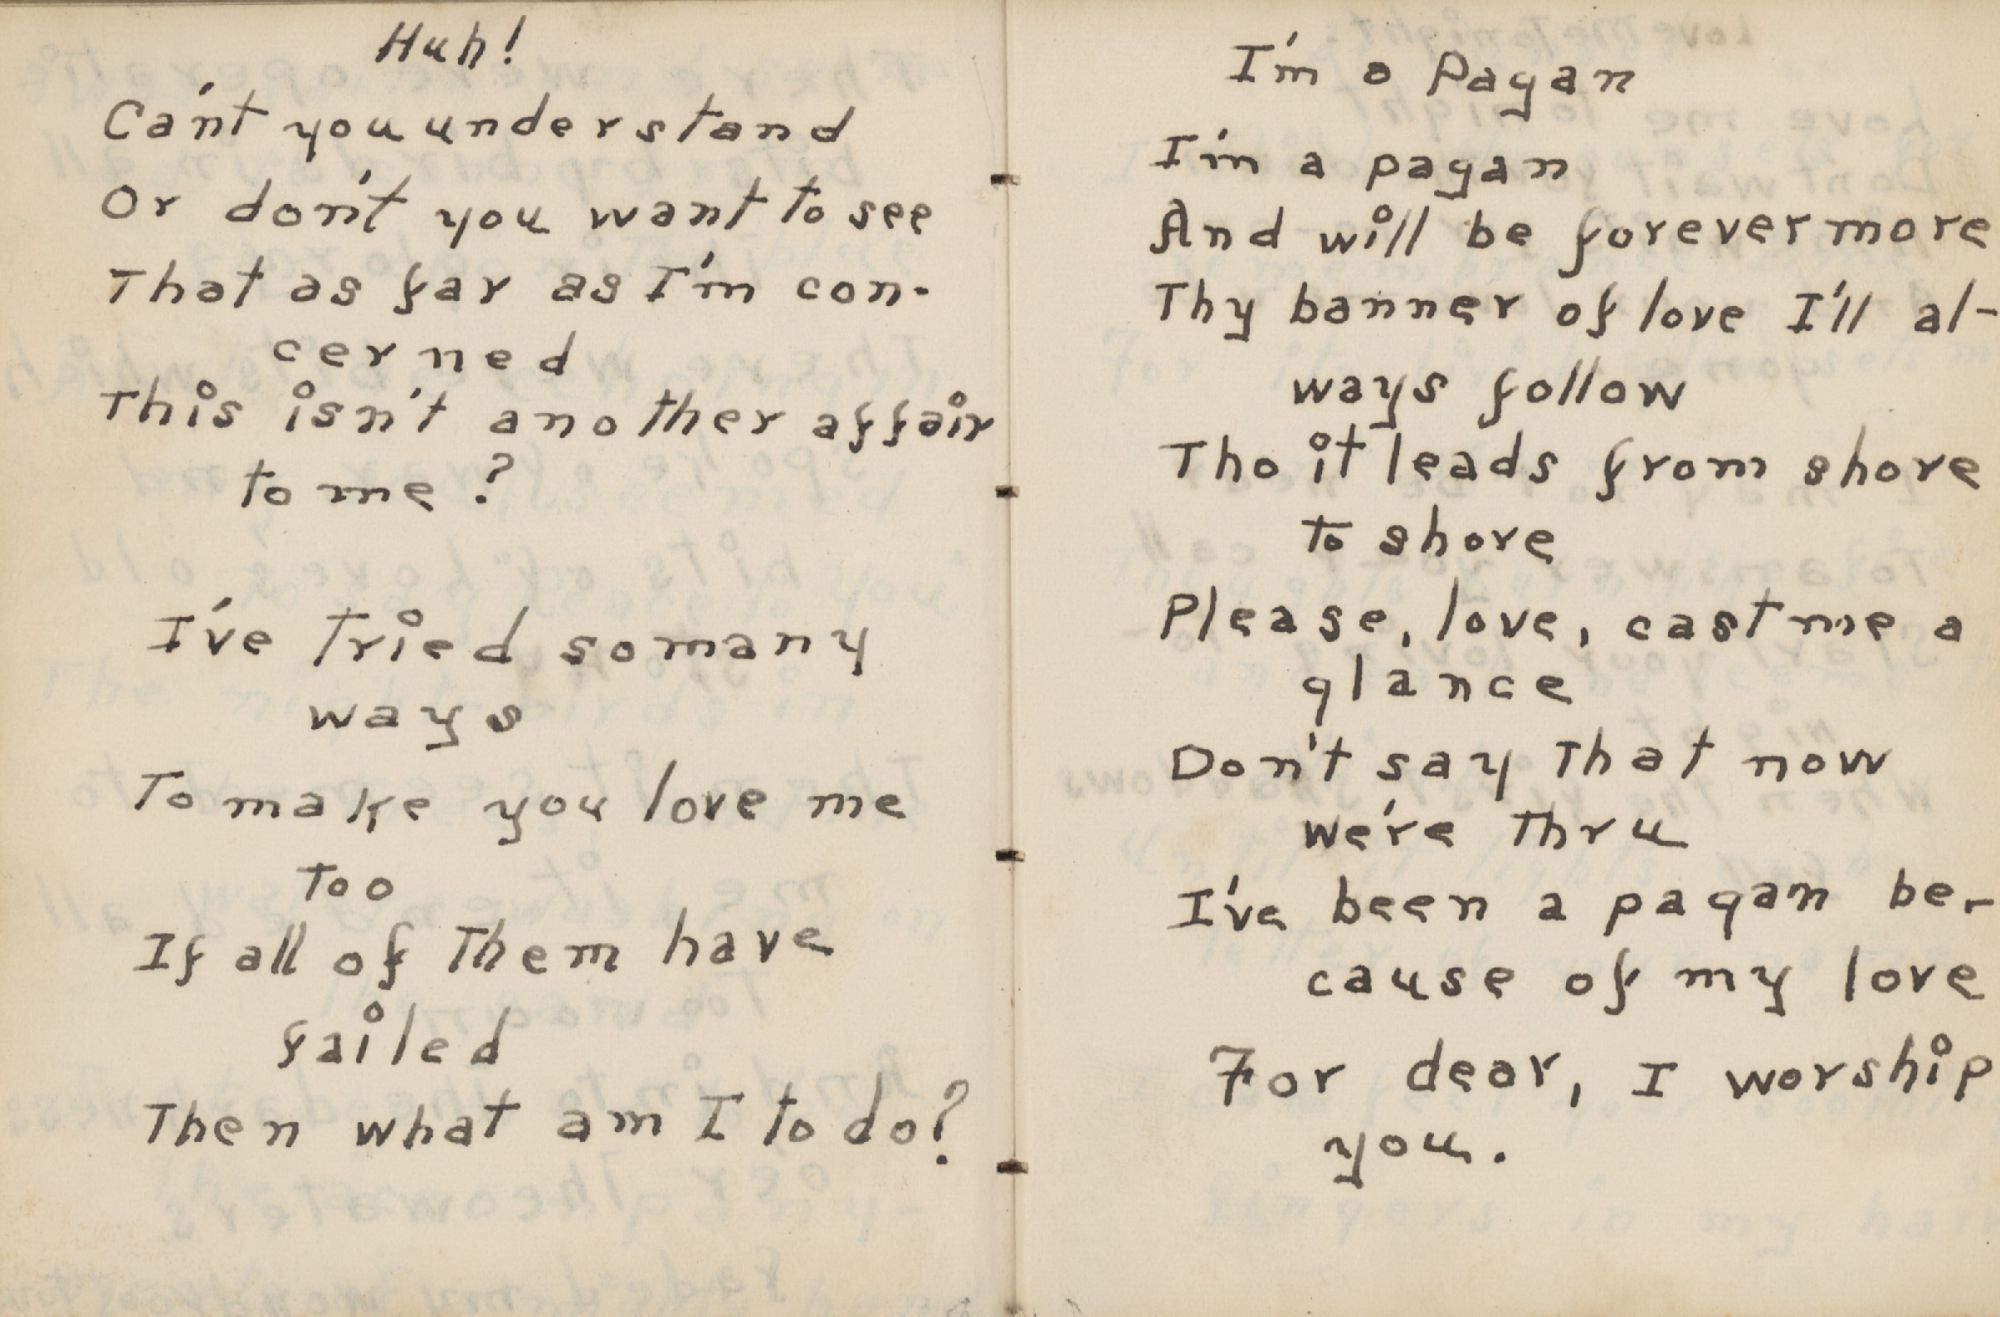 Huh!
Can't you understand
Or don't you want to see
That as far as I'm con-
cerned
This isn't another affair
to me?
I've tried so many
ways
To make you love me
too
If all of them have
failed
Then what am I to do?
I'm a Pagan
I'm a pagan
And will be forevermore
Thy banner of love I'll al-
ways follow
Tho it leads from shore
to shore
Please, love, cast me a
glance
Don't say that now
we're thru
I've been a pagan be-
cause of my love
For dear, I worship
you.